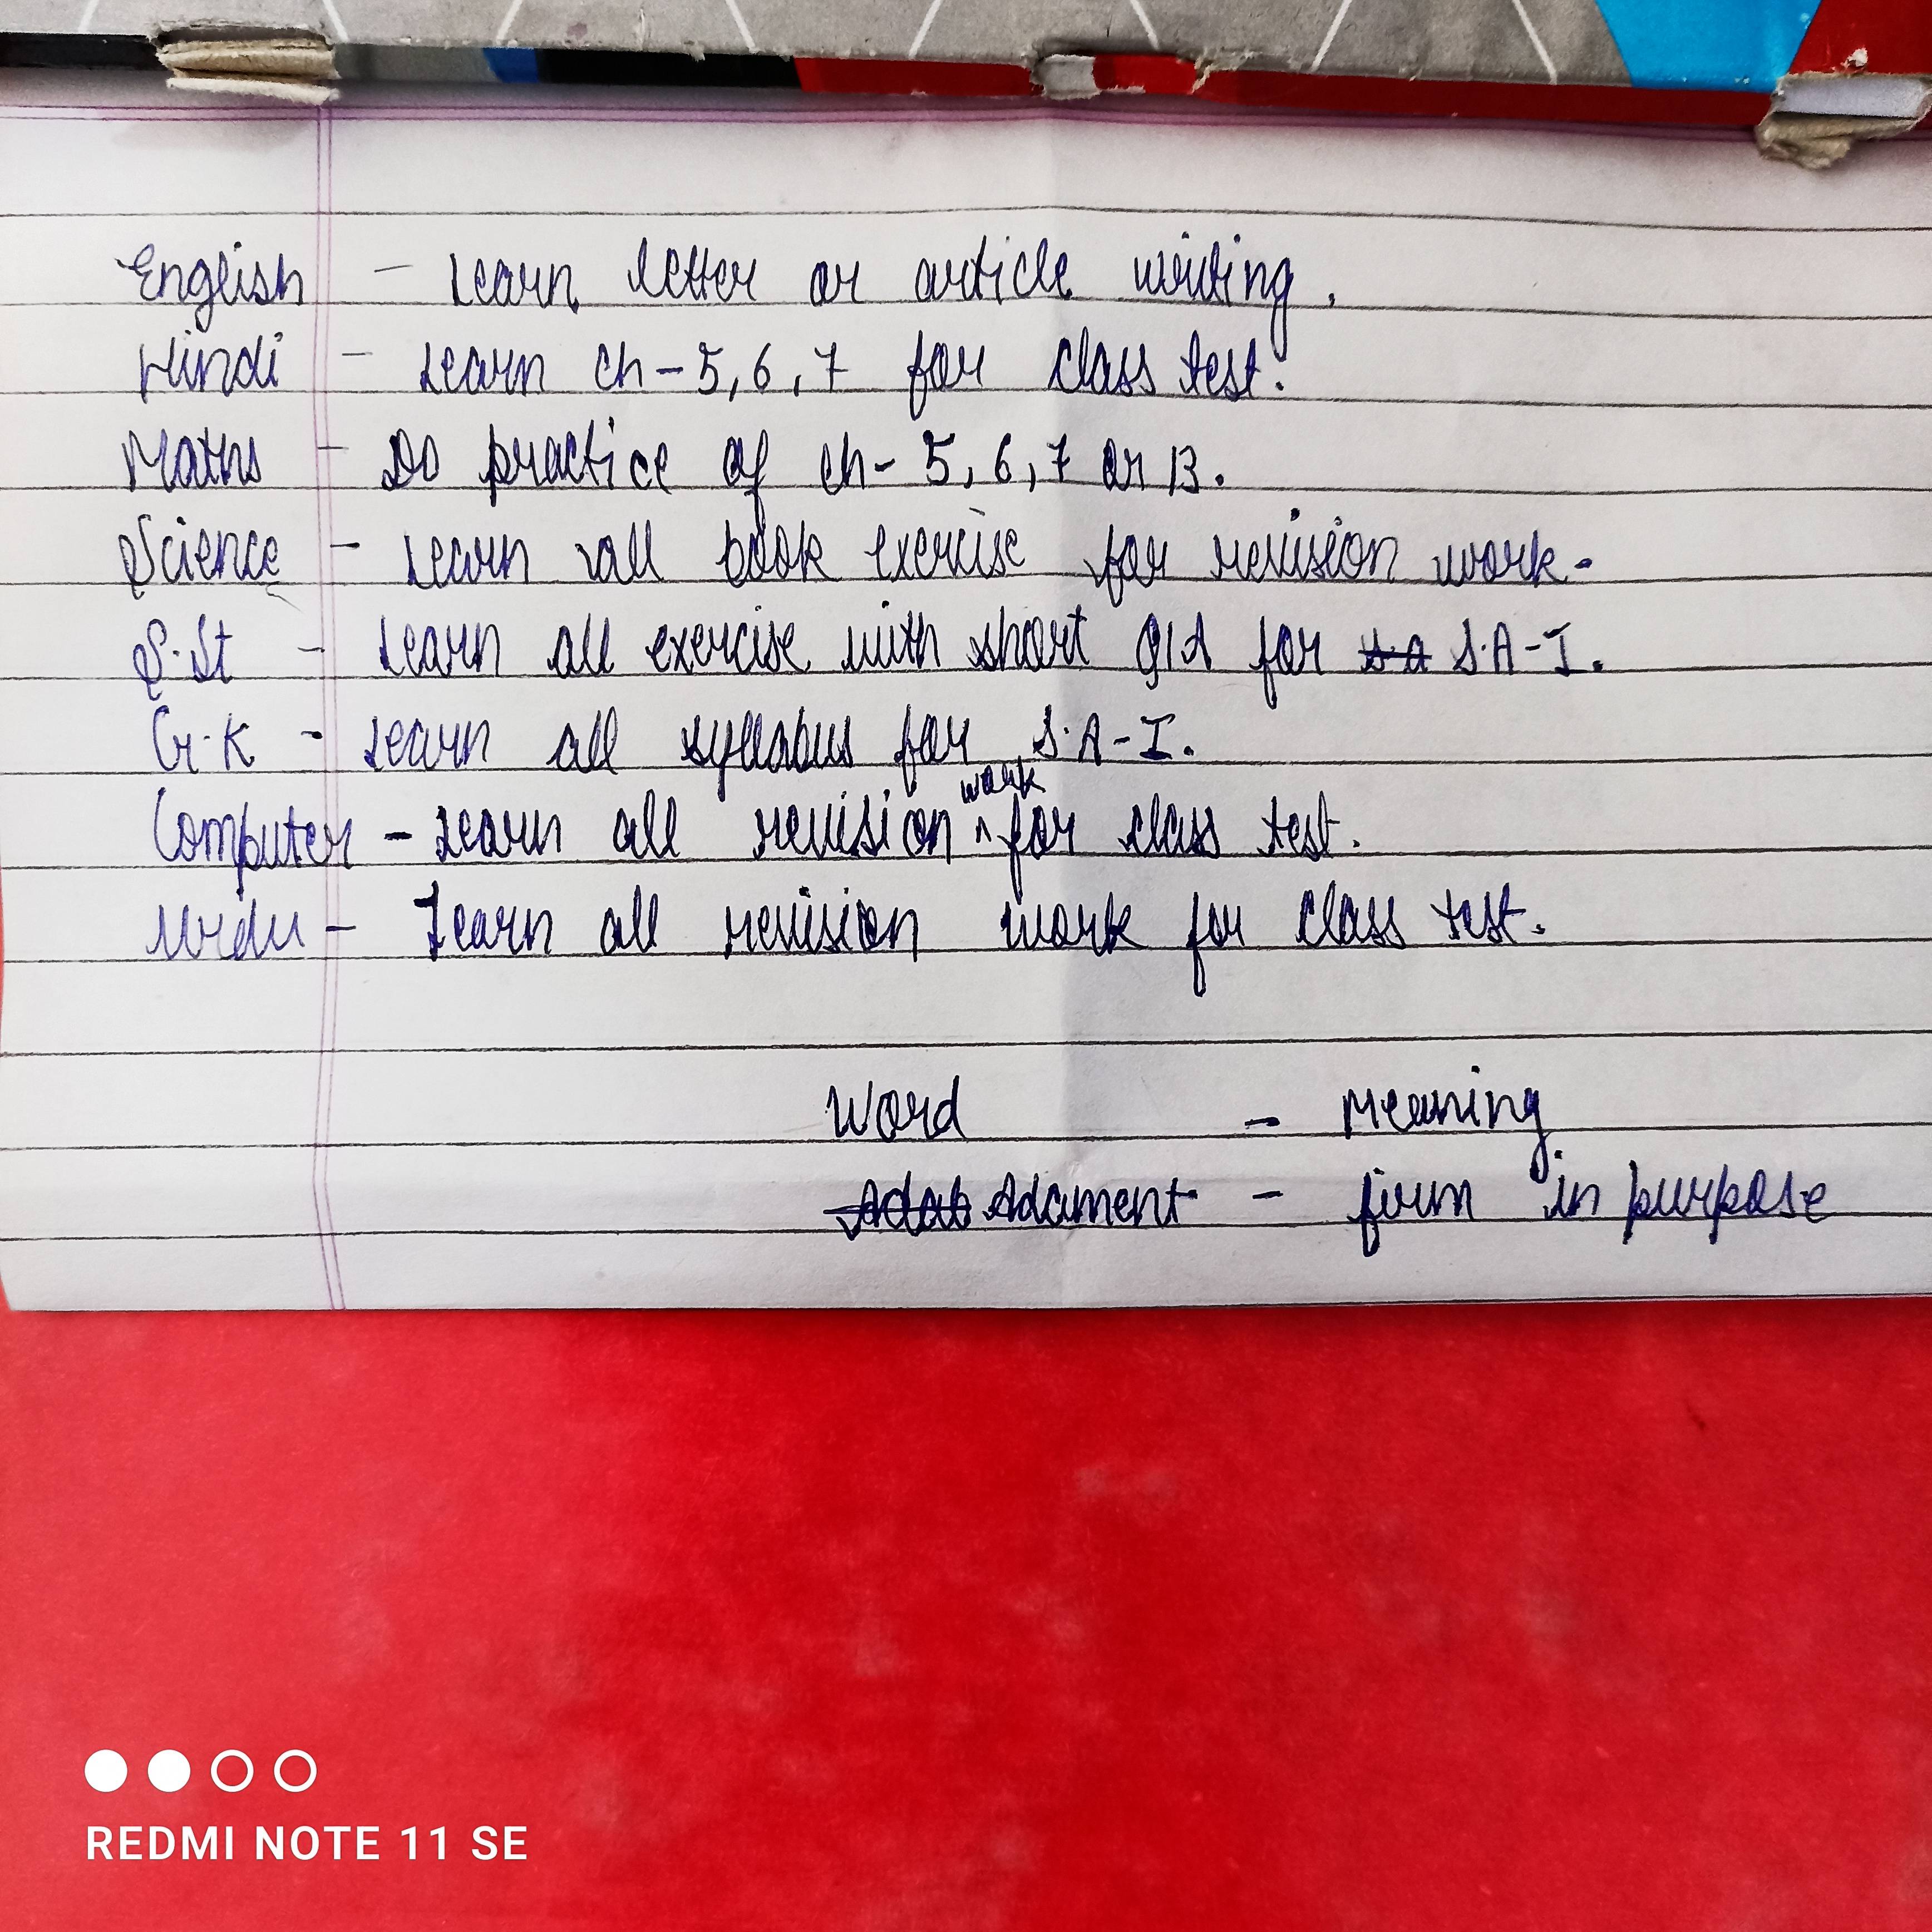 English - Learn letter or article writing.
Hindi - Learn ch-5,6,7 for class test.
Maths - Do practice of ch- 5,6,7 or 13.
Science - Learn all book exercise for revision work.
S.St - Learn all exercise with short for S.A-I.
G.K - Learn all syllabus for S.A-I.
Computer - Learn all revision work for class test.
Urdu - Learn all revision work for class test.
Word - Meaning
Adament - firm in purpose
REDMI NOTE 11 SE